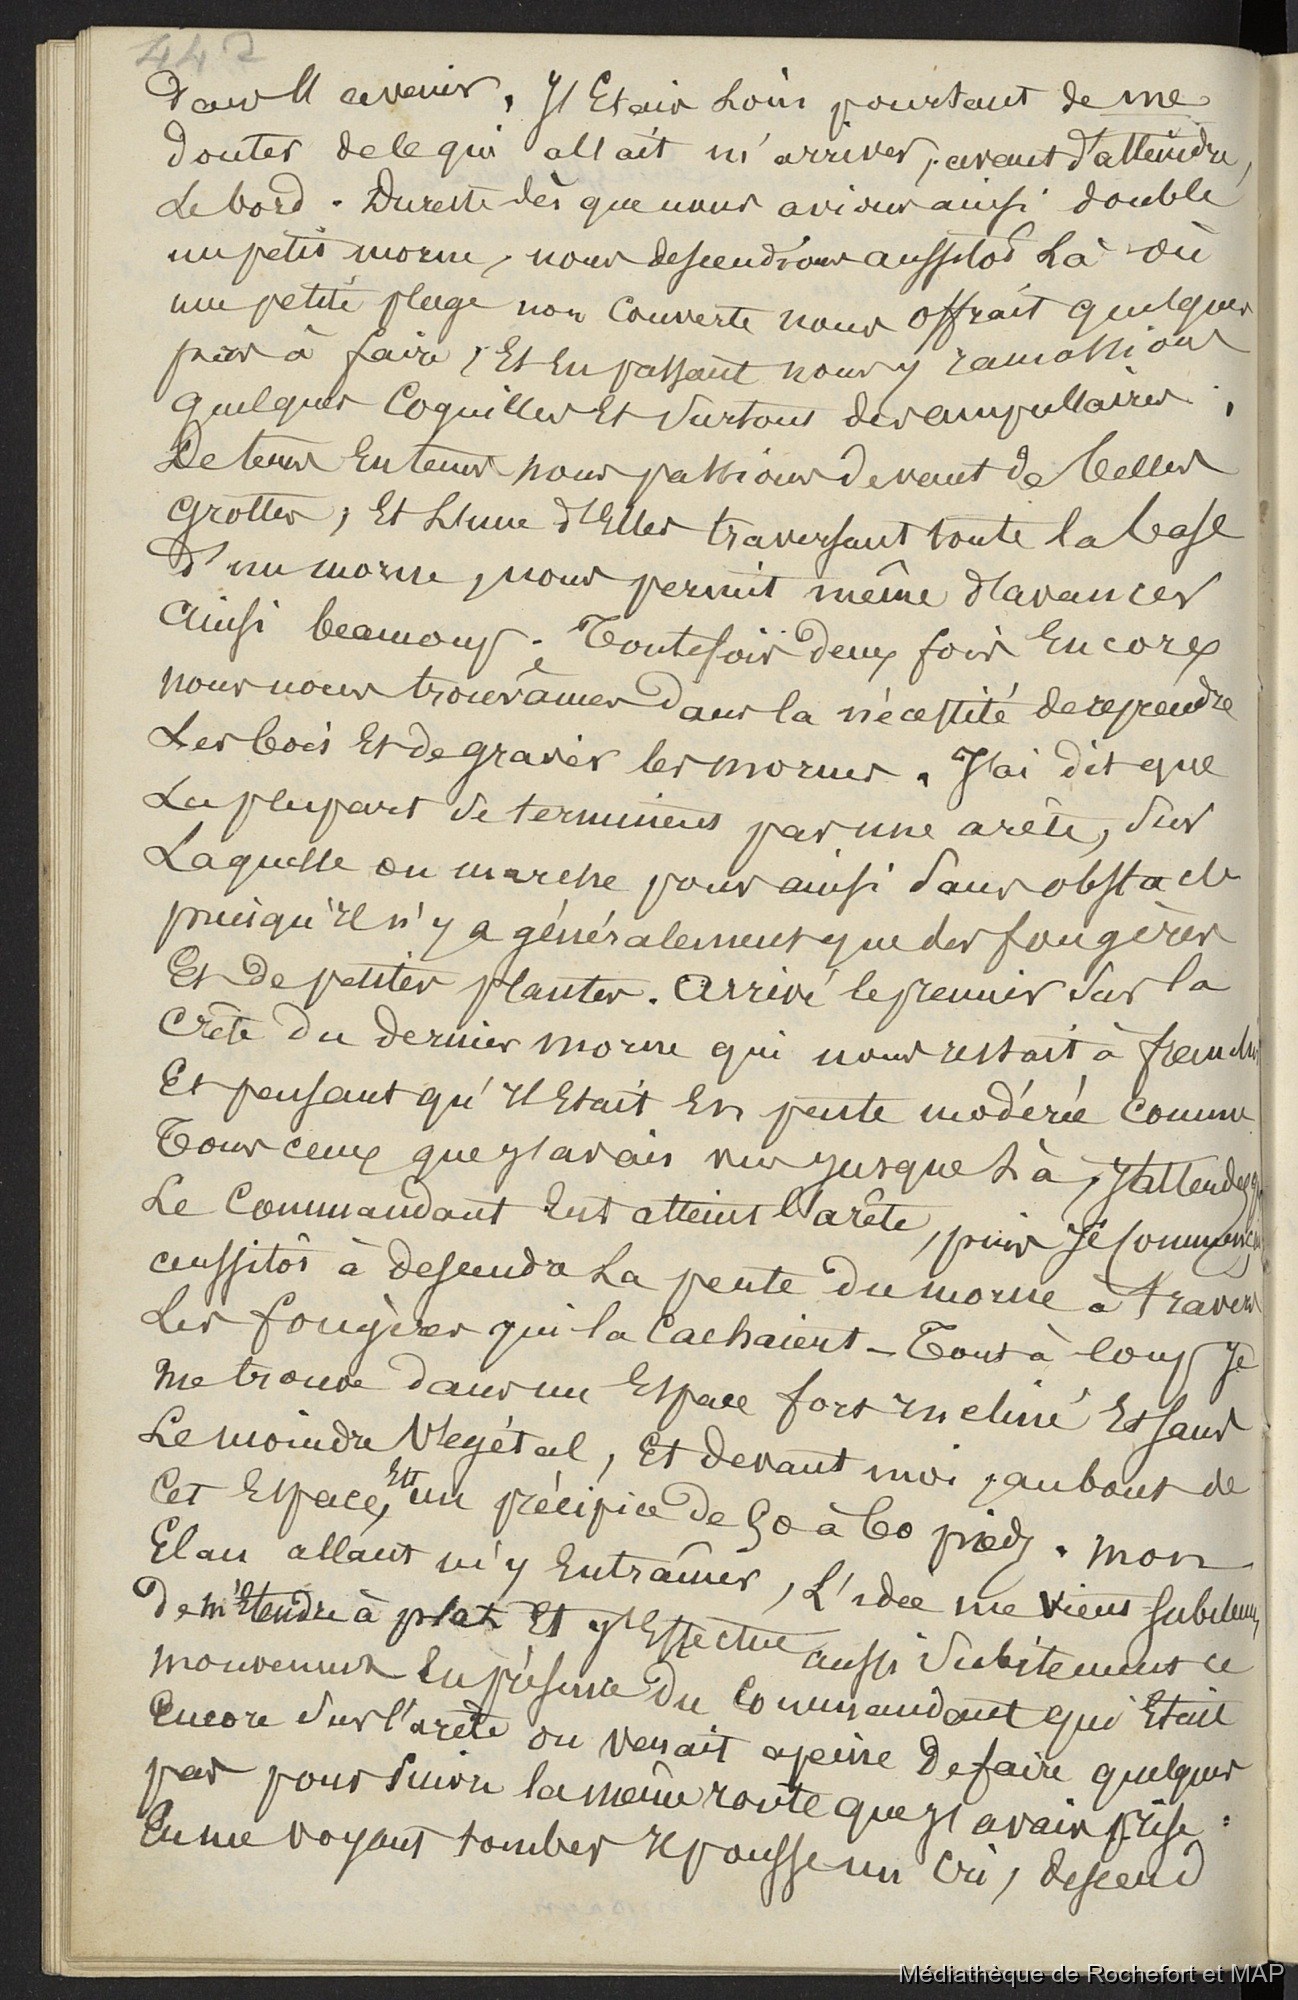 442
dans l'avenir, j'étais loin pourtant de me
douter de ce qui allait m'arriver, avant d'atteindre
le bord. Du reste dès que nous avions ainsi doublé
un petit morne, nous descendions aussitôt là où
une petite plage non couverte nous offrait quelques
pas à faire, et en passant nous y ramassions
quelques coquilles et surtout des ampullaires ;
De tems en tems nous passions devant de belles
grottes, et l'une d'elles traversant toute la base
d'un morne, nous permit même d'avancer
ainsi beaucoup. Toutefois deux fois encore
nous nous trouvâmes dans la nécessité de reprendre
les bois et de gravir les mornes. J'ai dit que
la plupart se terminent par une arête, sur
laquelle on marche pour ainsi sans obstacle
puisqu'il n'y a généralement que des fougères
et de petites plantes. Arrivé le premier sur la
crête du dernier morne qui nous restait à franchir
et pensant qu'il était en pente modérée comme
tous ceux que j'avais vus jusque là, j'attendis que
le commandant eut atteint l'arête, puis je commençai
aussitôt à descendre la pente du morne à travers
les fougères qui la cachaient - Tout à coup je
me trouve dans un espace fort incliné et sans
le moindre végétal, et devant moi, au bout de
cet espace, est un précipice de 50 à 60 pieds. Mon
élan allant m'y entraîner, l'idée me vient subitement
de m'étendre à plat et j'effectue aussi subitement ce
mouvement en présence du commandant qui était
encore sur l'arête ou venait apeine de faire quelques
pas pour suivre la même route que j'avais prise :
en me voyant tomber il pousse un cri, descend
Médiathèque de Rochefort et MAP